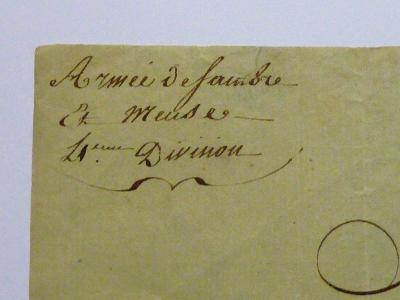 Armée de Sambre
Et Meuse
4.eme Division